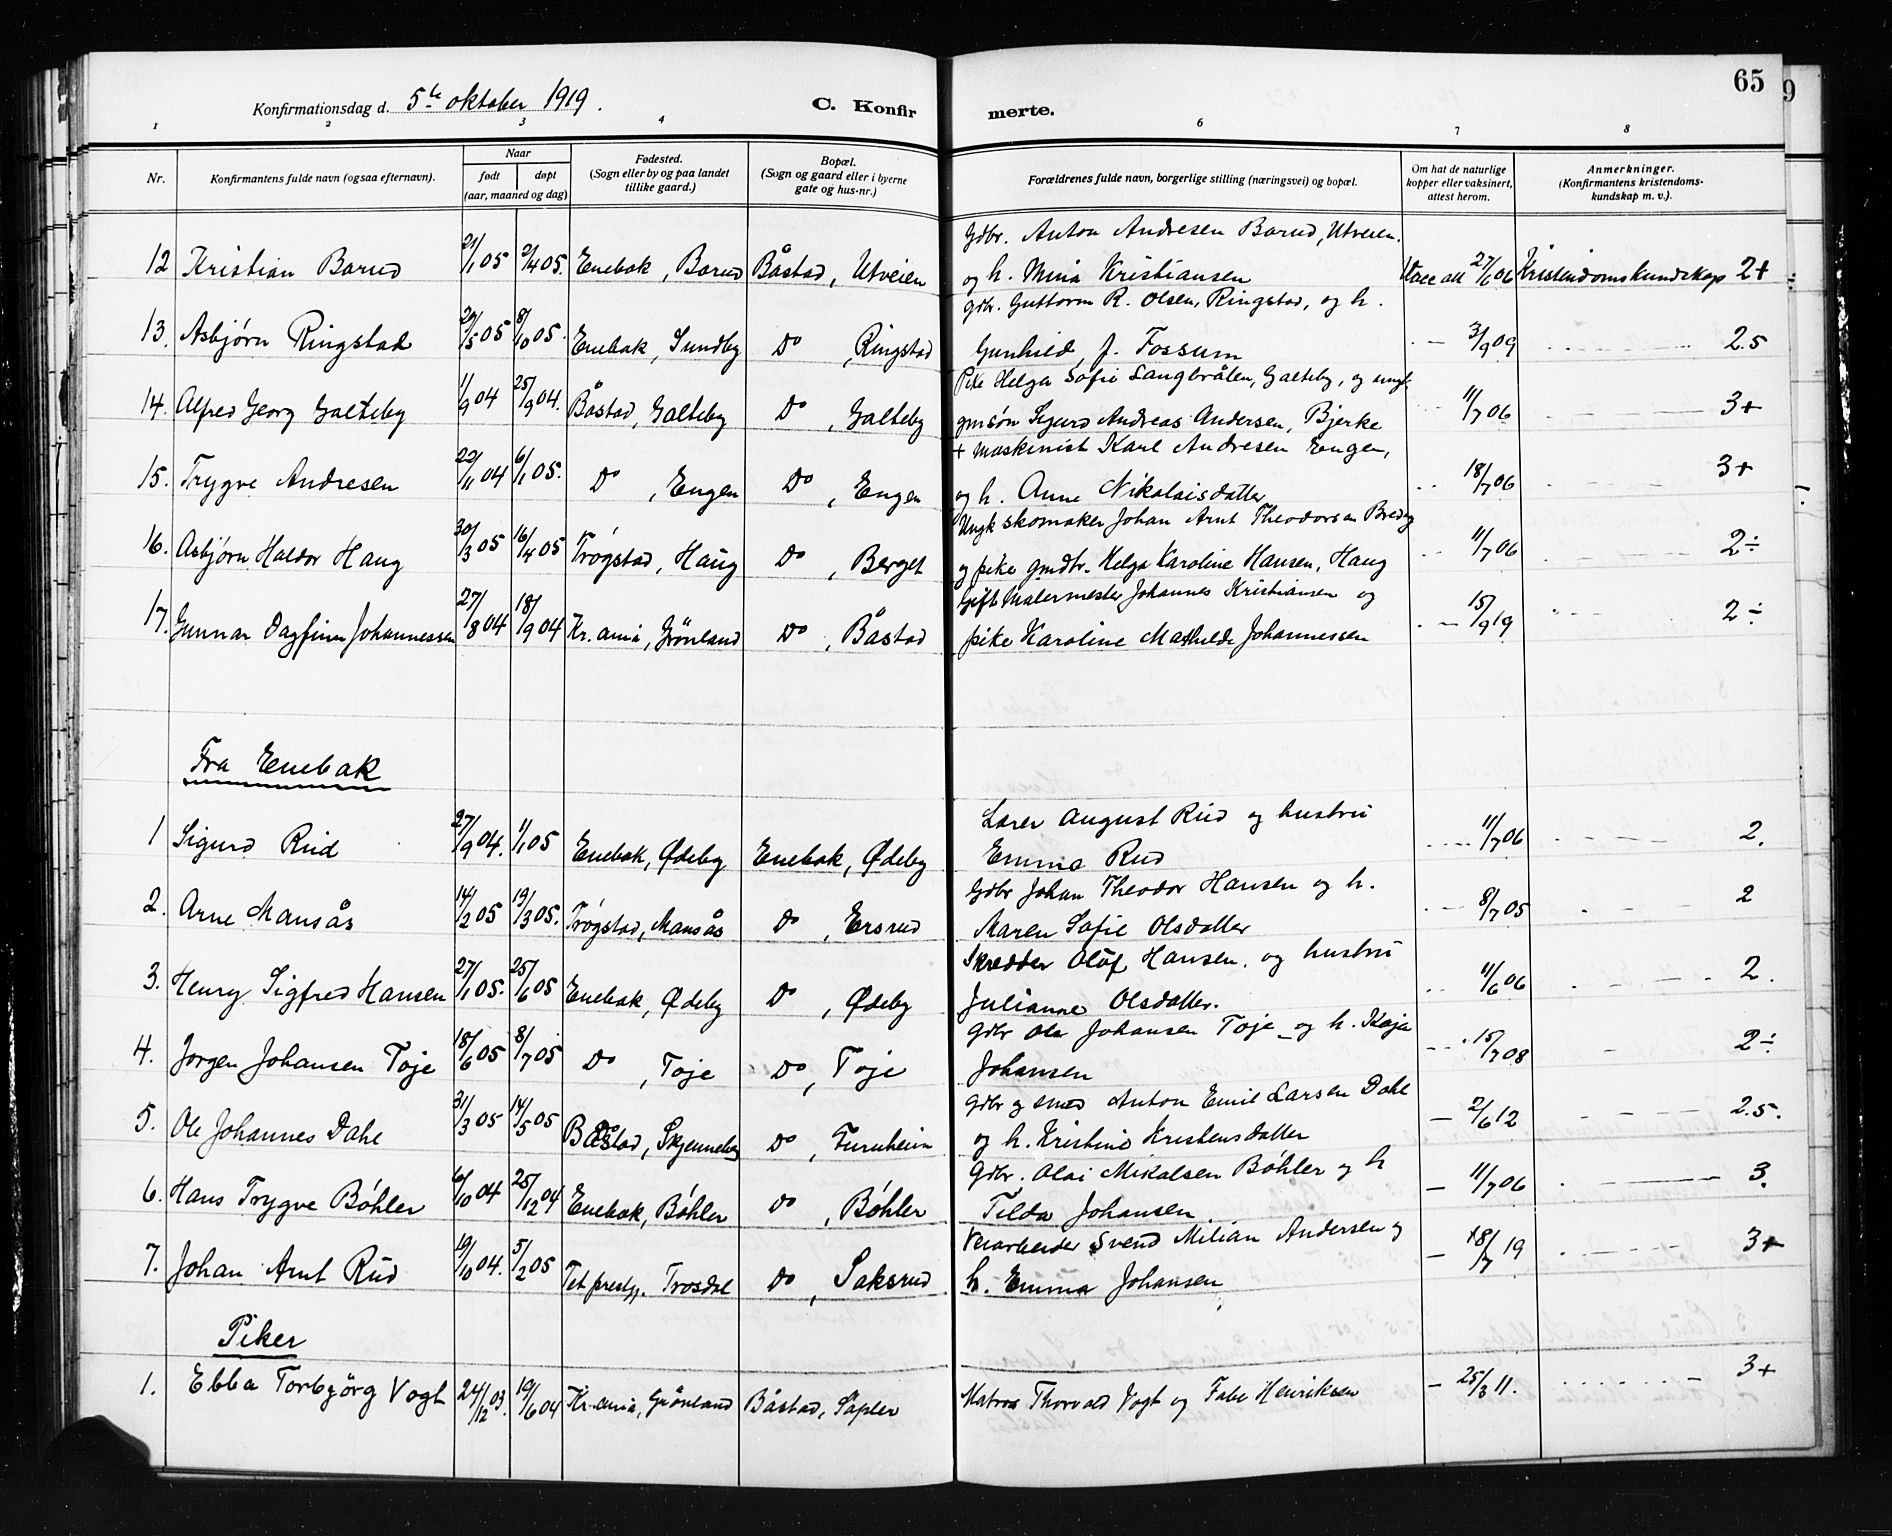 65
9
Konfirmationsdag d. 5te oktober 1919. C. Konfirmerte.
1 2 3 4 6 7 8
Nr. Konfirmantens fulde navn (ogsaa efternavn). Naar født døpt (aar, maaned og dag) Fødested. (Sogn eller by og paa landet tillike gaard.) Bopæl. (Sogn og gaard eller i byerne gate og hus-nr.) Forældrenes fulde navn, borgerlige stilling (næringsvei) og bopæl. Om hat de naturlige kopper eller vaksinert, attest herom. Anmerkninger. (Konfirmantens kristendoms-kundskap m. v.).
Gdbr. Anton Andresen Borud, Utveien.
12 Kristian Borud 21/1 05 2/4 05. Enebak, Borud Båstad, Utveien og h. Mina Kristiansen Vacc att 27/6 06 Kristendomskundskap 2+
Gdbr. Guttorm R. Olsen, Ringstad, og h.
13. Asbjørn Ringstad 29/5 05 8/10 05. Enebak, Sundby Do, Ringstad Gunhild, f. Fossum 3/9 09 2.5
Pike Helga Sofie Langbråten, Galteby, og ungk.
14. Alfred Georg Galteby 1/9 04 25/9 04. Båstad, Galteby Do, Galteby gmsøn Sigurd Andreas Andersen, Bjerke 11/7 06 3+
+ Maskinist Karl Andresen Engen,
15. Trygve Andresen 22/11 04 6/1 05. Do, Engen Do, Engen og h. Anne Nikolaisdatter 18/7 06 3+
Ungk skomaker Johan Arnt Theodorsen
16. Asbjørn Haldor Haug 30/3 05 16/4 05 Trøgstad, Haug Do, Berget og pike gmdtr. Helga Karoline Hansen, Haug 11/7 06 2÷
Gift Malermester Johannes Kristiansen og
17. Gunnar Dagfinn Johannessen 27/8 04 18/9 04 Kr.ania, Grönland Do, Båstad pike Karoline Mathilde Johannessen 15/9 19 2÷
Fra Enebak
Lærer August Rud og hustru
1 Sigurd Rud 27/9 04. 1/1 05 Enebak, Ødeby Enebak, Ødeby Emma Rud 11/7 06 2.
Gdbr Johan Theodor Hansen og h.
2. Arne Mansås 14/2 05 19/3 05. Trøgstad, Mansås Do, Ersrud Maren Sofie Olsdatter 8/7 05 2
Skredder Olof Hansen. og hustru
3. Henry Sigfred Hansen 27/1 05. 25/6 05 Enebak, Ødeby Do, Ødeby Julianne Olsdatter. 11/6 06 2.
Gdbr Ole Johansen Toje og h. Kaja
4. Jørgen Johansen Toje 18/6 05 8/7 05 Do, Toje Do, Toje Johansen 15/7 08 2÷
Gdbr og smed Anton Emil Larsen Dahl
5. Ole Johannes Dahl 31/3 05 14/5 05 Båstad, Skjenneby Do, Furuheim og h. Kristine Kristensdatter 2/6 12 2.5.
Gdbr. Olai Mikalsen Bøhler og h
6. Hans Trygve Bøhler 6/10 04 25/12 04 Enebak, Bøhler Do, Bøhler Tilda Johansen 11/7 06 3.
Veiarbeider Svend Milian Andersen og
7. Johan Arnt Rud 19/10 04. 5/2 05 Tet prestgj. Trosdal Do, Saksrud h. Emma Johansen 18/7 19 3+
Piker
1. Ebba Torbjörg Vogt 24/12 03. 19/6 04 Kr.ania, Grönland Båstad, Sapler Matros Thorvald Vogt og Henriksen 25/3 11. 3+